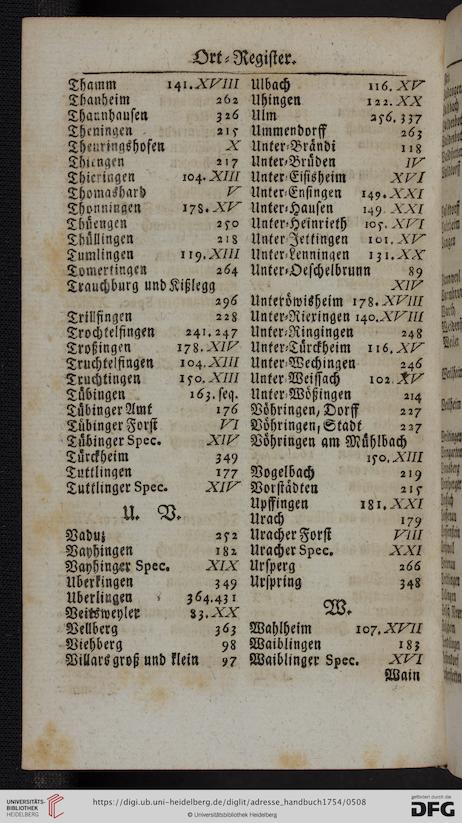 Ort-Register.
Thamm 141. XVIII
Thanheim 262
Thannhausen 326
Theningen 215
Theuringshofen X
Thiengen 217
Thieringen 104. XIII
Thomashard V
Thonningen 178. XV
Thüengen 250
Thüllingen 218
Tumlingen 119. XIII
Tomertingen 264
Trauchburg und Kißlegg
296
Trillfingen 228
Trochtelfingen 241. 247
Troßingen 178. XIV
Truchtelfingen 104. XIII
Truchtingen 150. XIII
Tübingen 163. seq.
Tübinger Amt 176
Tübinger Forst VI
Tübinger Spec. XIV
Türckheim 349
Tuttlingen 177
Tuttlinger Spec. XIV
U. V.
Vaduz 252
Vayhingen 182
Vayhinger Spec. XIX
Uberkingen 349
Uberlingen 364. 431
Veitsweyler 83. XX
Vellberg 363
Viehberg 98
Villars groß und klein 97
Ulbach 116. XV
Uhingen 122. XX
Ulm 256. 337
Ummendorff 263
Unter-Brändi 118
Unter-Brüden IV
Unter-Eisisheim XVI
Unter-Ensingen 149. XXI
Unter-Hausen 149. XXI
Unter-Heinrieth 105. XVI
Unter-Jettingen 101. XV
Unter-Lenningen 131. XX
Unter-Oeschelbrunn 89
XIV
Unteröwisheim 178. XVIII
Unter-Rieringen 140. XVIII
Unter-Ringingen 248
Unter-Türckheim 116. XV
Unter-Wechingen 246
Unter-Weissach 102. XV
Unter-Wößingen 214
Vöhringen, Dorff 227
Vöhringen, Stadt 227
Vöhringen am Mühlbach
150. XIII
Vogelbach 219
Vorstädten 215
Upffingen 181. XXI
Urach 179
Uracher Forst VIII
Uracher Spec. XXI
Ursperg 266
Urspring 348
W.
Wahlheim 107. XVII
Waiblingen 183
Waiblinger Spec. XVI
Wain
UNIVERSITÄTS-
BIBLIOTHEK
HEIDELBERG
https://digi.ub.uni-heidelberg.de/diglit/adresse_handbuch1754/0508
© Universitätsbibliothek Heidelberg
gefördert durch die
DFG